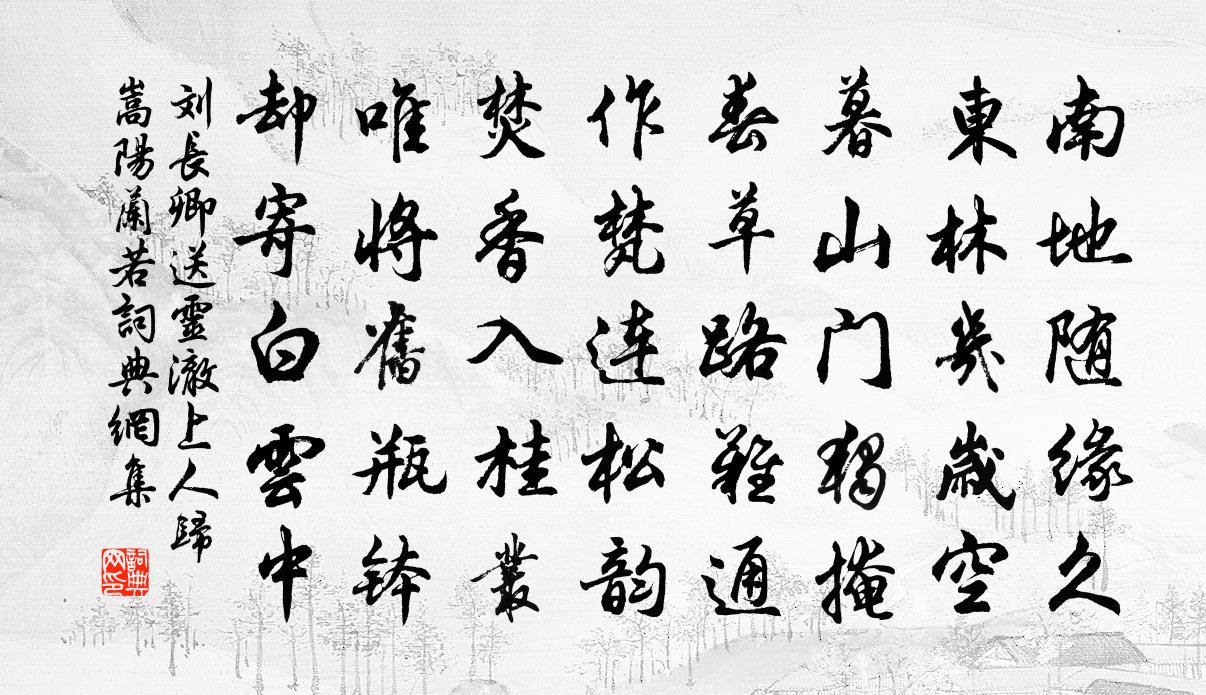 南地随缘久
東林岁歲空
暮山门獨掩
春草路難通
作梵連松韵
焚香入桂叢
唯將舊瓶钵
却寄白雲中
刘長卿送靈澈上人歸
嵩陽蘭若詞典網集
詞典网印